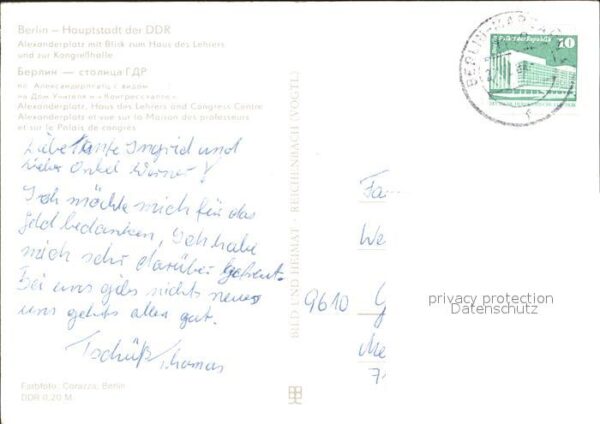 Berlin – Hauptstadt der DDR
Alexanderplatz mit Blick zum Haus des Lehrers
und zur Kongreßhalle
Берлин — столица ГДР
Alexanderplatz, Haus des Lehrers and Congress Centre
Alexanderplatz et vue sur la Maison des professeurs
et sur le Palais de congrès
Liebe Tante Ingrid und
lieber Onkel Werner!
Ich möchte mich für das
Geld bedanken, Ich habe
mich sehr darüber gefreut.
Bei uns gibs nichts neues
uns gehts allen gut.
Tschüß Thomas
Farbfoto: Corazza, Berlin
DDR 0,20 M
BILD UND HEIMAT · REICHENBACH (VOGTL)
BERLIN-MARZAHN
10
Fa
We
9610 G
Me
7
privacy protection
Datenschutz